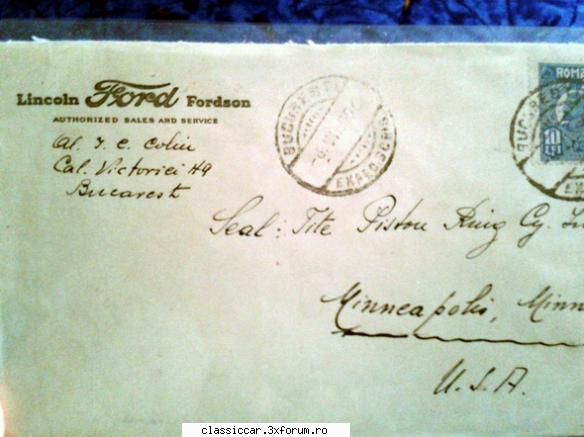 Lincoln Ford Fordson
AUTHORIZED SALES AND SERVICE
Al. I. C. Colin
Cal. Victoriei 49
Bucarest
BUCUREȘTI
EXPED. SCR
ROMA
10
LEI
BUCUREȘTI
Seal: Tite Piston Ring Cy.
Minneapolis, Minn
U.S.A.
classiccar.3xforum.ro